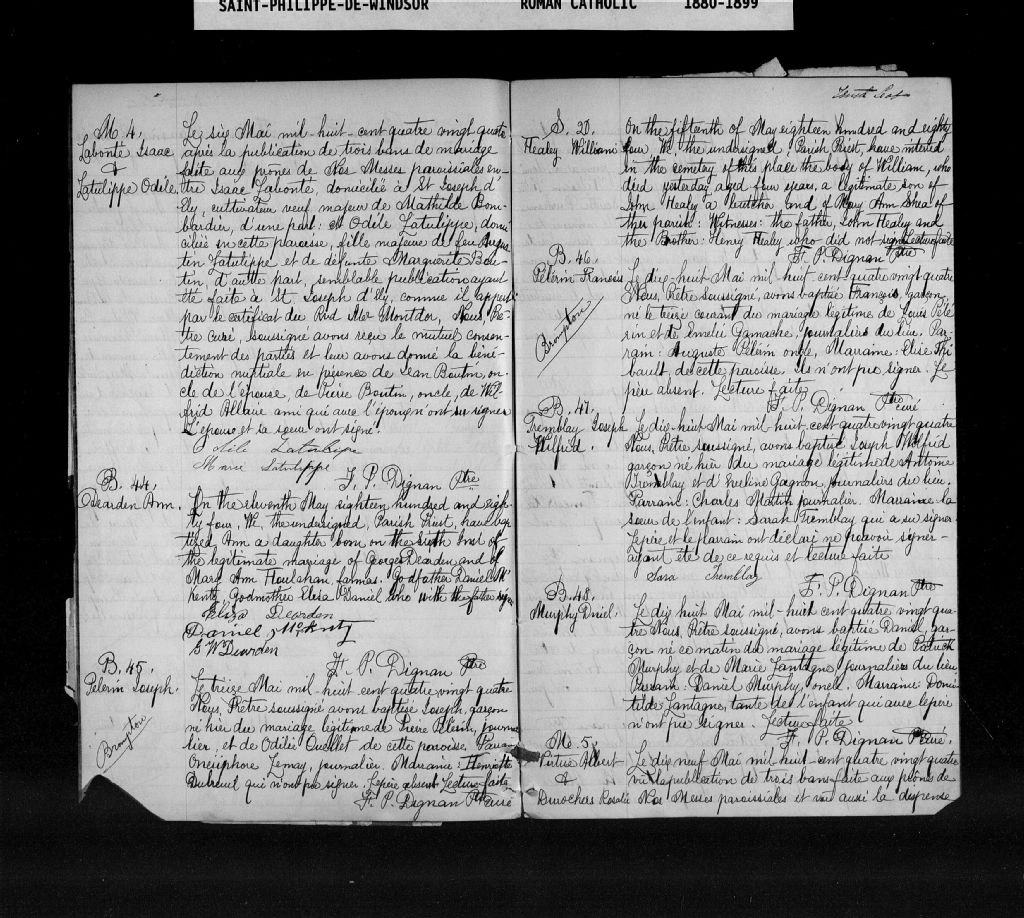 SAINT-PHILIPPE-DE-WINDSOR ROMAN CATHOLIC 1880-1899
M. 4.
Labonté Isaac
&
Latulippe Odéle.
Le six Mai mil-huit-cent quatre vingt quatre
après la publication de trois bans de mariage
faite aux prônes de Nos Messes paroissiales en-
tre Isaac Labonté, domicilié à St Joseph d'
Ely, cultivateur veuf majeur de Mathilde Bom-
bardier, d'une part: et Odéle Latulippe, domi
ciliée en cette paroisse, fille majeure de feu Augus
tin Latulippe et de défunte Marguerite Bou-
tin, d'autre part, semblable publication ayant
été faite à St Joseph d'Ely, comme il appert
par le certificat du Rvd Mer Montdor, Nous, Prê-
tre curé, soussigné avons reçu le mutuel consen-
tement des parties et leur avons donné la béné-
diction nuptiale en présence de Jean Boutin, on-
cle de l'épouse, de Pierre Boutin, oncle, de Wil-
frid Allaire ami qui avec l'époux n'ont su signer
L'épouse et sa soeur ont signé.
Odile Latulippe
Marie Latulippe
F. P. Dignan Ptre
B. 44.
Dearden Ann.
On the eleventh May eighteen hundred and eigh-
ty four, We, the undersigned, Parish Priest, have bap
tized Ann a daughter born on the sixth Inst of
the legitimate marriage of George Dearden and of
Mary Ann Houlahan, farmer. Godfather Daniel Mc
Kenty, Godmother Elesa Daniel who with the father sign
Eliza Dearden
Daniel McKenty
G W Dearden
F. P. Dignan Ptre
B. 45.
Pélerin Joseph.
Brompton
Le treize Mai mil-huit-cent quatre vingt quatre
Nous, Prêtre soussigné avons baptisé Joseph, garçon
né hier du mariage légitime de Pierre Pélerin, journa
lier, et de Odélie Ouellet de cette paroisse. Parrain
Onesiphore Lemay, journalier. Marraine: Henriette
Dubreuil qui n'ont pu signer. Le père absent. Lecture faite.
F. P. Dignan Ptre Curé
S. 20.
Healey William
On the fifteenth of May eighteen hundred and eighty
four We the undersigned, Parish Priest, have interred
in the cemetry of this place the body of William, who
died yesterday aged four years, a legitimate son of
John Healey a butcher and of Mary Ann Shea of
this parish: Witnesses: the father, John Healey and
the Brother: Henry Healey who did not sign. Lecture faite
F. P. Dignan Ptre
B. 46.
Pélerin Francis
Brompton
Le dix-huit Mai mil-huit cent quatre vingt quatre
Nous, Prêtre soussigné, avons baptisé François, garçon
né le treize courant du mariage légitime de Louis Péle
rin et de Emelie Gamache, journaliers du lieu. Par-
rain: Auguste Pélerin oncle, Marraine: Elise Thi
bault, de cette paroisse. Ils n'ont pu signer. Le
père absent. Lecture faite
F. P. Dignan Ptre Curé
B. 47.
Tremblay Joseph
Wilfrid.
Le dix-huit Mai mil-huit-cent quatre vingt quatre
Nous, Prêtre soussigné, avons baptisé Joseph Wilfrid
garçon né hier du mariage légitime de Antoine
Tremblay et d'Eveline Gagnon, journaliers du lieu.
Parrain: Charles Mattin journalier. Marraine la
soeur de l'enfant: Sarah Tremblay qui a su signer
Le père et le parrain ont déclaré ne pouvoir signer-
ayant été de ce requis et lecture faite
Sara Tremblay
F. P. Dignan Ptre
B. 48.
Murphy Daniel.
Le dix huit Mai mil-huit cent quatre vingt qua-
tre Nous, Prêtre soussigné, avons baptisé Daniel, gar-
çon né ce matin du mariage légitime de Patrick
Murphy et de Marie Lantagne, journaliers du lieu
Parrain: Daniel Murphy, oncle. Marraine: Domi
tilde Lantagne, tante de l'enfant qui avec le père
n'ont pu signer. Lecture faite
F. P. Dignan Ptre Curé.
M. 5.
Vertue Albert
&
Durochers Rosalie
Le dix neuf Mai mil-huit-cent quatre vingt quatre
vu la publication de trois bans faite aux prônes de
Nos Messes paroissiales et vu aussi la dispense